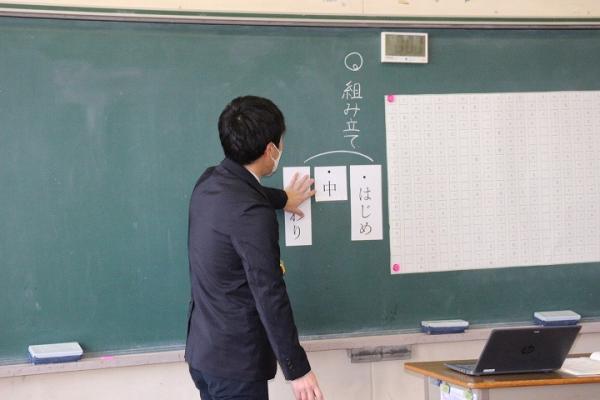 組み立て
・はじめ
・中
わり